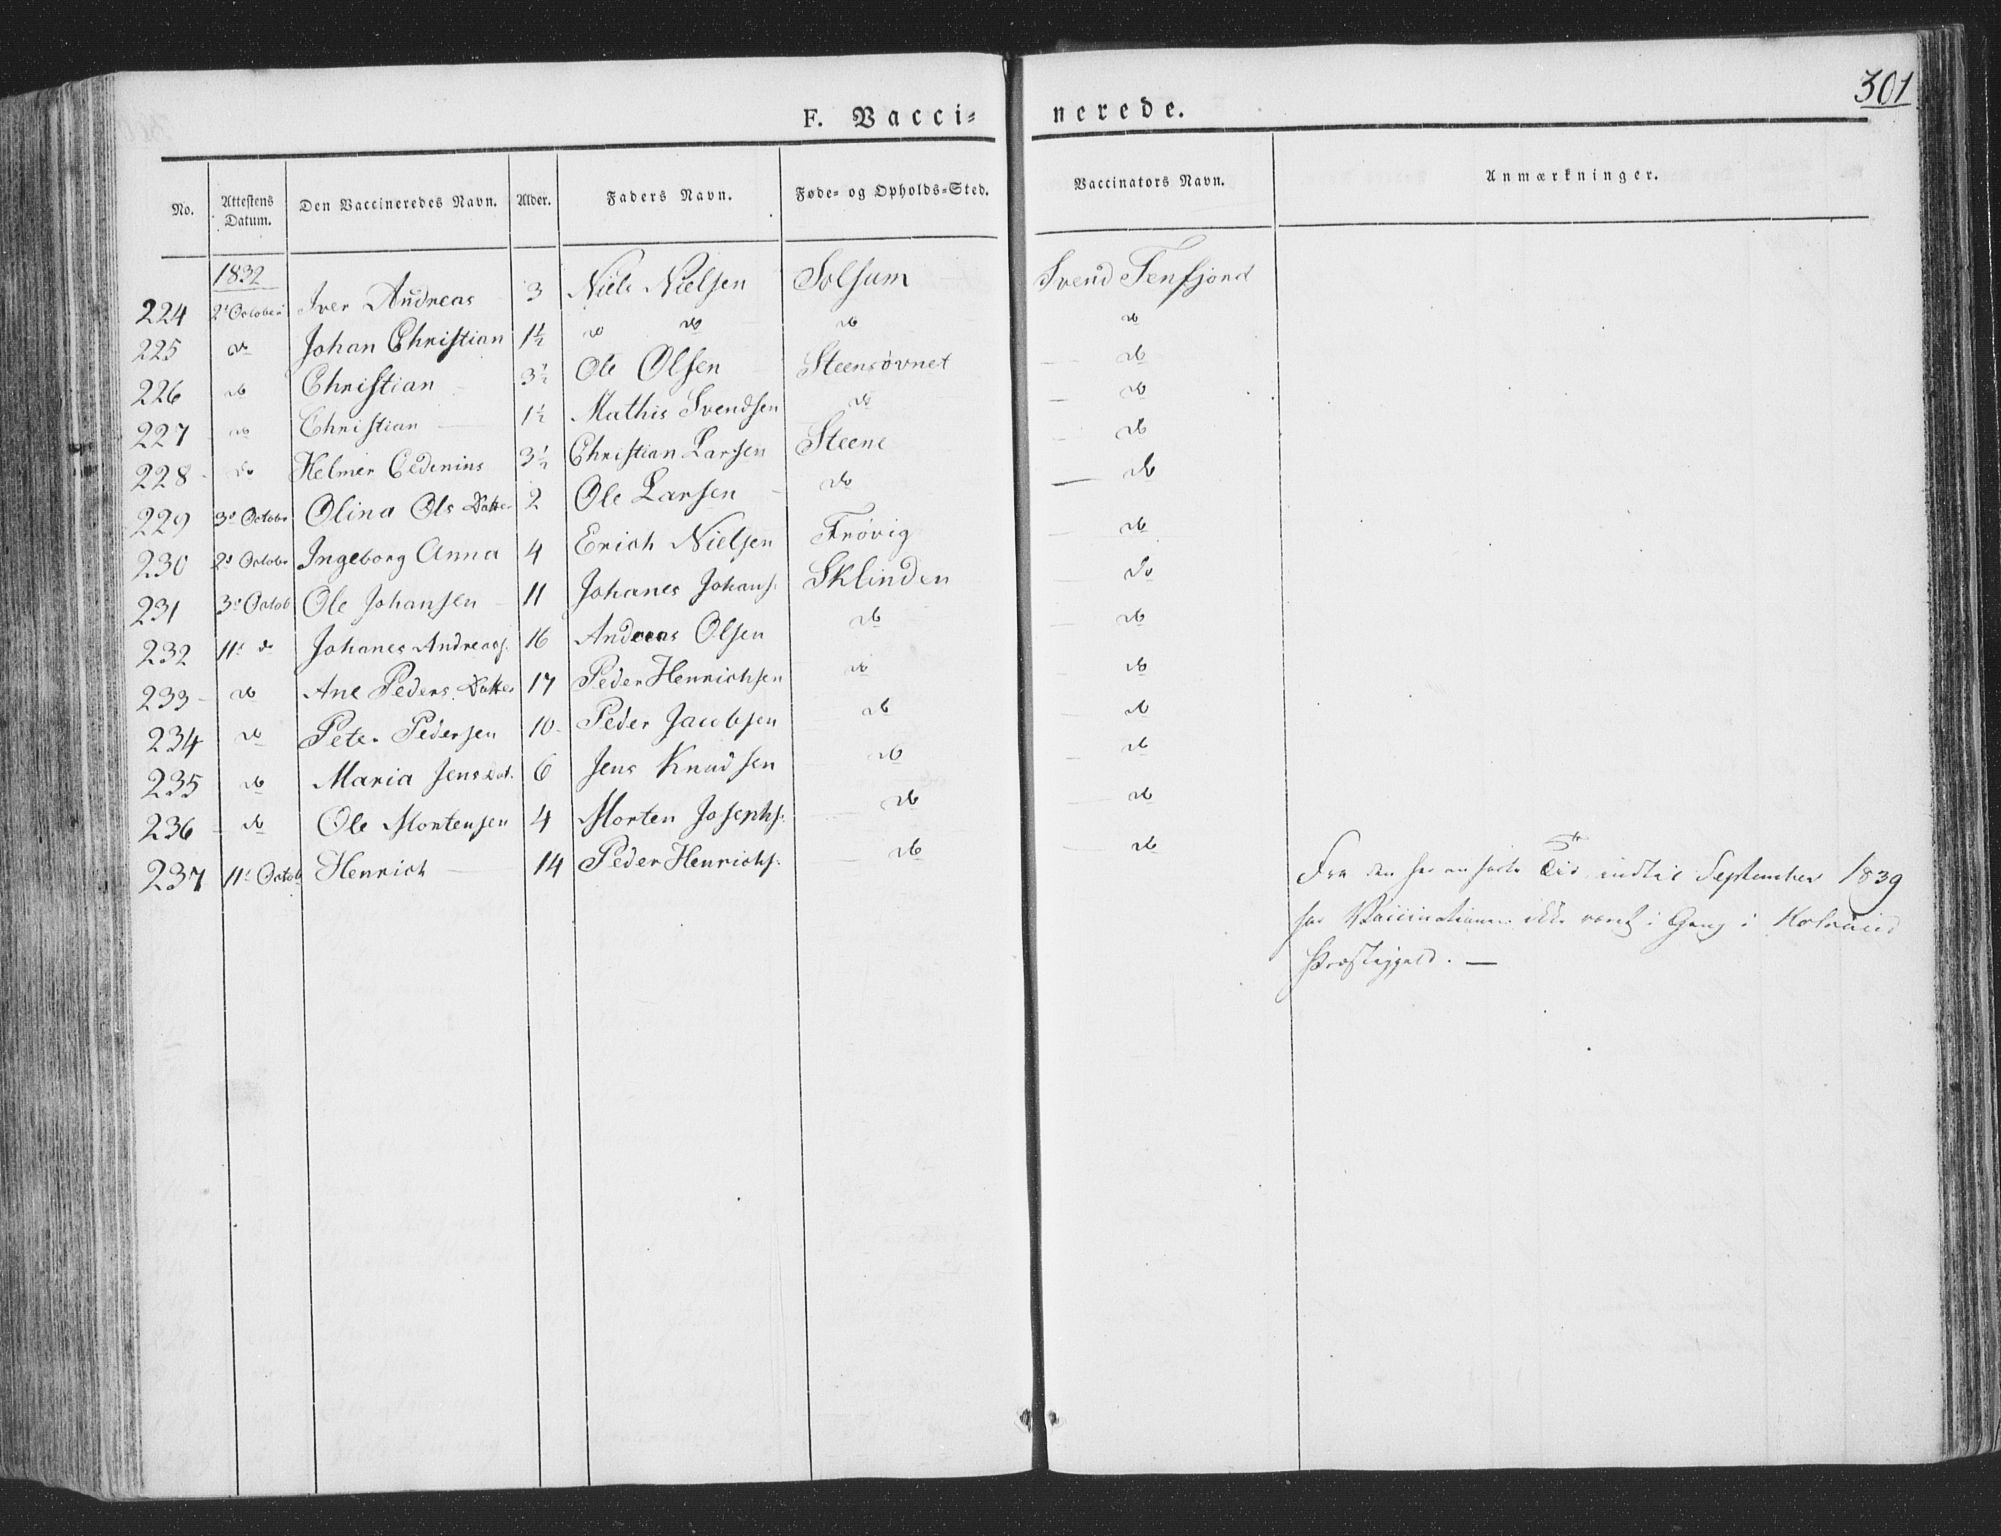 301
F. Vacci= nerede.
No. Attestens Datum. Den Vaccineredes Navn. Alder. Faders Navn. Føde- og Opholds-Sted. Vaccinators Navn. Anmærkninger.
1832
224 2' October Iver Andreas 3 Niels Nielsen Solsum Svend Tenfjord
225 do Johan Christian 1½ do do do do
226 do Christian 3½ Ole Olsen Steensøvnet do
227 do Christian 1½ Mathis Svendsen do do
228 do Helmer 3½ Christian Larsen Steene do
229 3' Octobr Olina Ols Datter 2 Ole Larsen do do
230 2' Octobr Ingeborg Anna 4 Erich Nielsen Frøvig do
231 3' Octob Ole Johansen 11 Johanes Johans. Sklinden do
232 11' do Johanes Andreass. 16 Andreas Olsen do do
233 do Ane Peders Datter 17 Peder Henrichsen do do
234 do Peter Pedersen 10 Peder Jacobsen do do
235 do Maria Jensdat. 6 Jens Knudsen do do
236 do Ole Mortensen 4 Morten Josephs. do do
237 11' Octob Henrich 14 Peder Henrichs. do do
Fra den her anførte Tid indtil September 1839
har Vaccinationen ikke været i Gang i Kolvereid
Præstegjeld. —